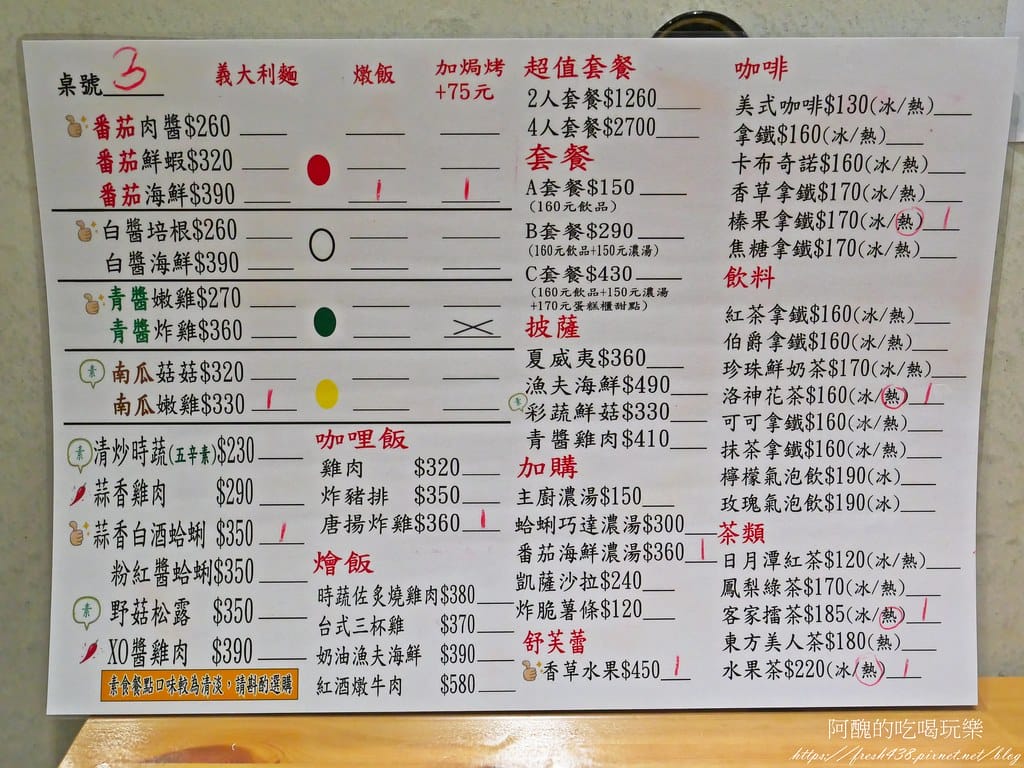 桌號 3 義大利麵 燉飯 加焗烤 +75元
番茄肉醬$260
番茄鮮蝦$320
番茄海鮮$390 | |
白醬培根$260
白醬海鮮$390
青醬嫩雞$270
青醬炸雞$360
素 南瓜菇菇$320
南瓜嫩雞$330 |
素 清炒時蔬(五辛素)$230
蒜香雞肉 $290
蒜香白酒蛤蜊 $350 |
粉紅醬蛤蜊$350
素 野菇松露 $350
XO醬雞肉 $390
素食餐點口味較為清淡，請斟酌選購
咖哩飯
雞肉 $320
炸豬排 $350
唐揚炸雞$360 |
燴飯
時蔬佐炙燒雞肉$380
台式三杯雞 $370
奶油漁夫海鮮 $390
紅酒燉牛肉 $580
超值套餐
2人套餐$1260
4人套餐$2700
套餐
A套餐$150
(160元飲品)
B套餐$290
(160元飲品+150元濃湯)
C套餐$430
(160元飲品+150元濃湯
+170元蛋糕櫃甜點)
披薩
夏威夷$360
漁夫海鮮$490
素 彩蔬鮮菇$330
青醬雞肉$410
加購
主廚濃湯$150
蛤蜊巧達濃湯$300
番茄海鮮濃湯$360 |
凱薩沙拉$240
炸脆薯條$120
舒芙蕾
香草水果$450 |
咖啡
美式咖啡$130(冰/熱)
拿鐵$160(冰/熱)
卡布奇諾$160(冰/熱)
香草拿鐵$170(冰/熱)
榛果拿鐵$170(冰/熱) |
焦糖拿鐵$170(冰/熱)
飲料
紅茶拿鐵$160(冰/熱)
伯爵拿鐵$160(冰/熱)
珍珠鮮奶茶$170(冰/熱)
洛神花茶$160(冰/熱) |
可可拿鐵$160(冰/熱)
抹茶拿鐵$160(冰/熱)
檸檬氣泡飲$190(冰)
玫瑰氣泡飲$190(冰)
茶類
日月潭紅茶$120(冰/熱)
鳳梨綠茶$170(冰/熱)
客家擂茶$185(冰/熱) |
東方美人茶$180(熱)
水果茶$220(冰/熱) |
阿醜的吃喝玩樂
https://fresh438.pixnet.net/blog